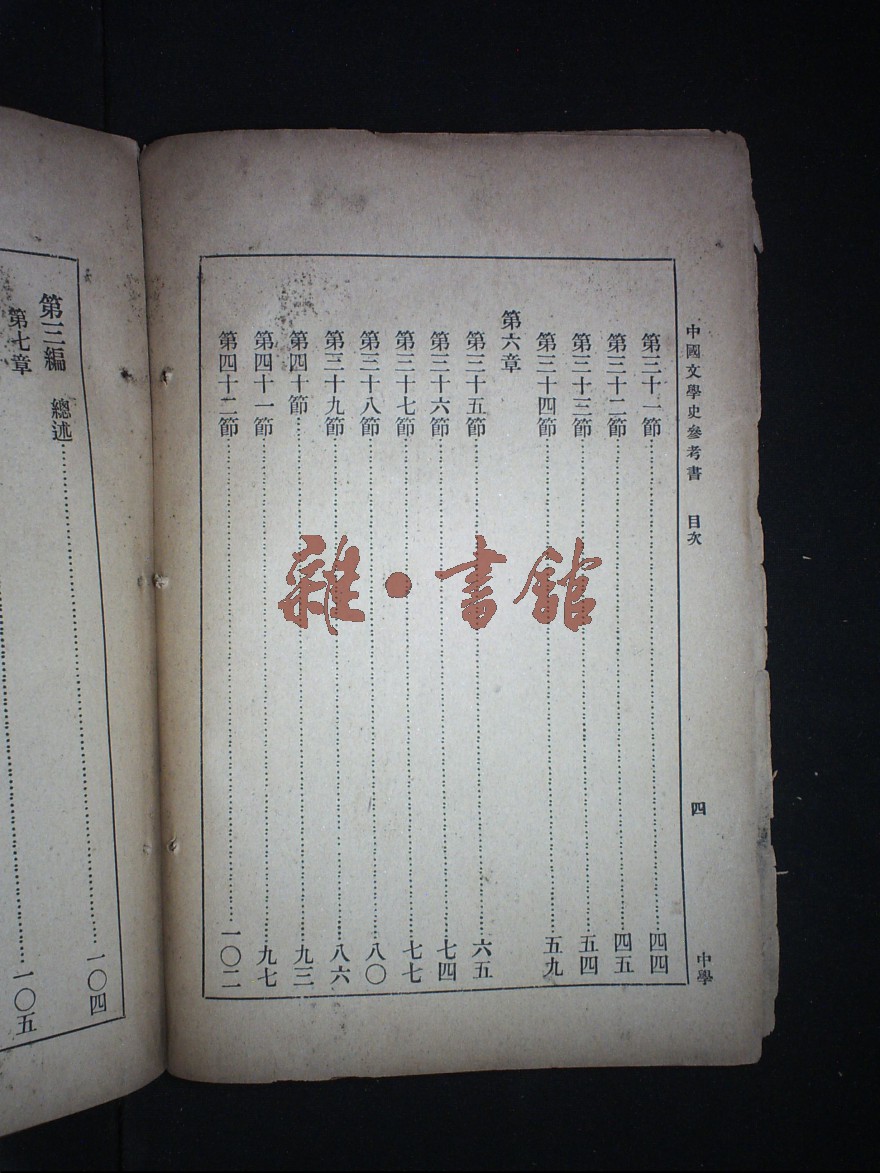 中國文學史參考書 目次 四 中學
第三十一節…………四四
第三十二節…………四五
第三十三節…………五四
第三十四節…………五九
第六章
第三十五節…………六五
第三十六節…………七四
第三十七節…………七七
第三十八節…………八〇
第三十九節…………八六
第四十節…………九三
第四十一節…………九七
第四十二節…………一〇二
第三編 總述…………一〇四
第七章…………一〇五
雜·書館